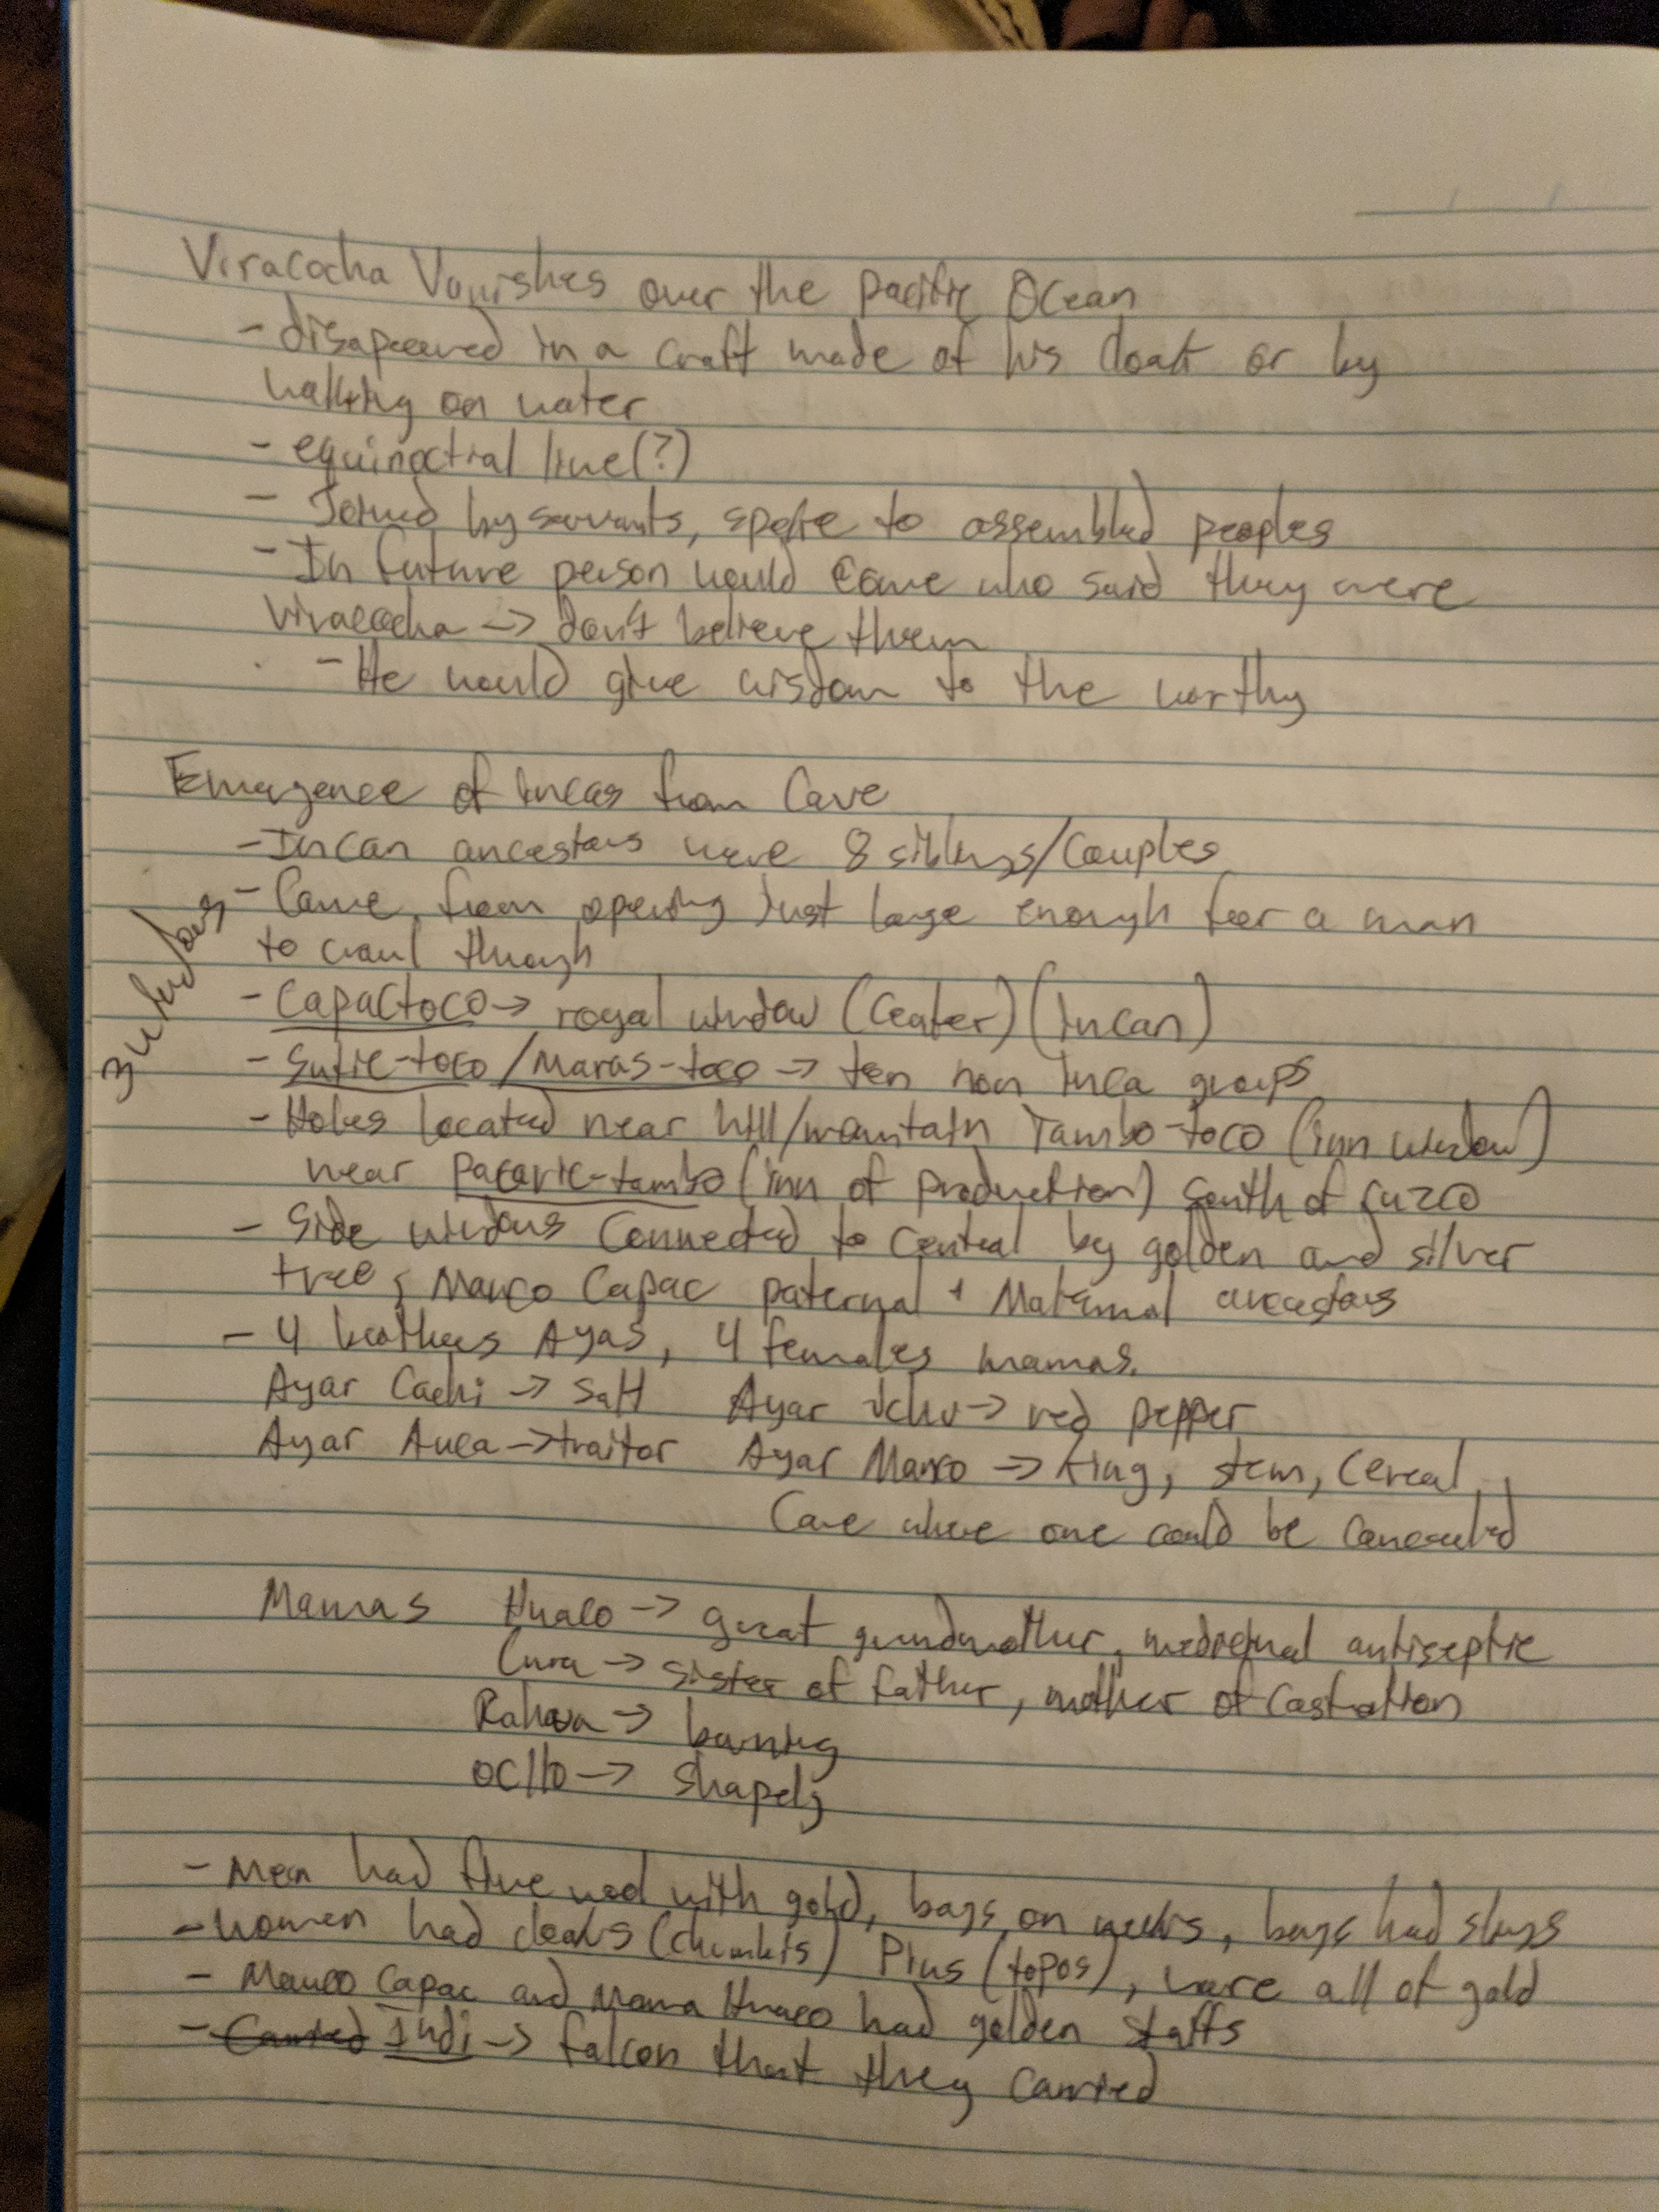 Viracocha Vanishes over the Pacific Ocean
- disapeared in a craft made of his cloak or by
walking on water
- equinoctial line(?)
- Joined by servants, spoke to assembled peoples
- In future person would come who said they were
Viracocha -> don't believe them
- He would give wisdom to the worthy
Emergence of Incas from Cave
- Incan ancestors were 8 siblings/couples
- Came from opening just large enough for a man
to crawl through
3 windows
- Capactoco -> royal window (center) (Incan)
- Sutic-toco/Maras-toco -> ten non Inca groups
- Holes located near hill/mountain Tambo-toco (inn window)
near Pacaric-tambo (inn of production) South of Cuzco
- Side windows connected to central by golden and silver
tree; Manco Capac paternal + Maternal ancestors
- 4 brothers Ayas, 4 females mamas.
Ayar Cachi -> salt Ayar Uchu -> red pepper
Ayar Auca -> traitor Ayar Manco -> King, stem, cereal,
Cave where one could be concealed
Mamas Huaco -> great grandmother, medicinal antiseptic
Cura -> sister of father, mother of castration
Rahua -> burning
Ocllo -> shapely
- Men had fine wool with gold, bags on necks, bags had slings
- Women had cloaks (chumbis) Pins (topos), were all of gold
- Manco Capac and Mama Huaco had golden staffs
- Carried Indi -> falcon that they carried